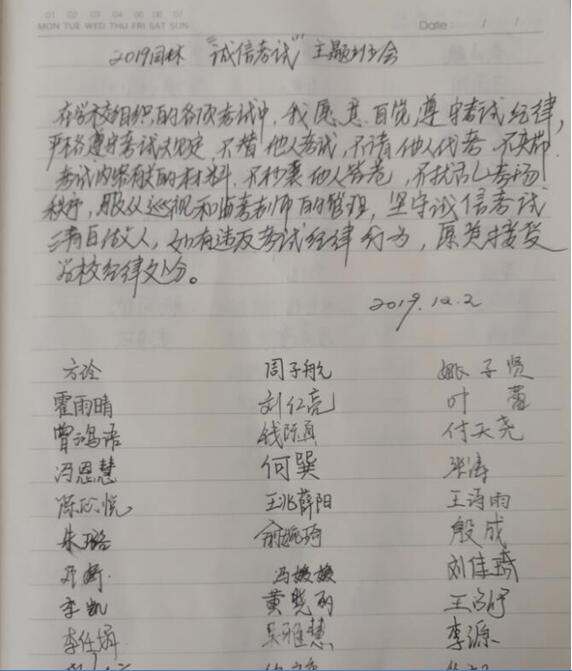 01 02 03 04 05 06 07
MON TUE WED THU FRI SAT SUN
Date: / /
2019园林 "诚信考试" 主题班会
在学校组织的各项考试中,我愿意自觉遵守考试纪律,
严格遵守考试规定,不替他人考试,不请他人代考,不夹带
考试内容有关的材料,不抄袭他人答卷,不扰乱考场
秩序,服从巡视和监考老师的管理,坚守诚信考试
清白做人,如有违反考试纪律行为,愿意接受
学校纪律处分。
2019.12.2
方诠 周子航 姚子贤
霍雨晴 刘仁亮 叶蕾
曾鸿语 付天尧
冯恩慧 何巽 张涛
陈欣悦 王兆薛阳 王诗雨
朱璐 俞婉琦 殷成
冯媛媛 刘佳琦
李凯 黄晓雨
李仕娟 吴雅慧 李源